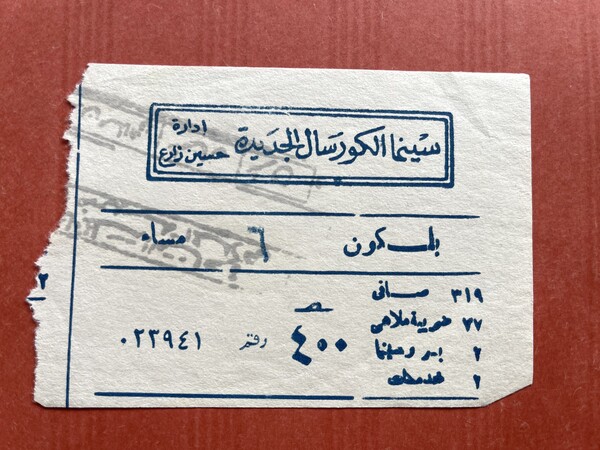 سينما الكورسال الجديدة
ادارة
حسين زارع
بلكون ٦ مساء
٣١٩ صافى
٧٧ ضريبة ملاهى
٢
١ خدمات
٤٠٠
رقم ٠٢٣٩٤١